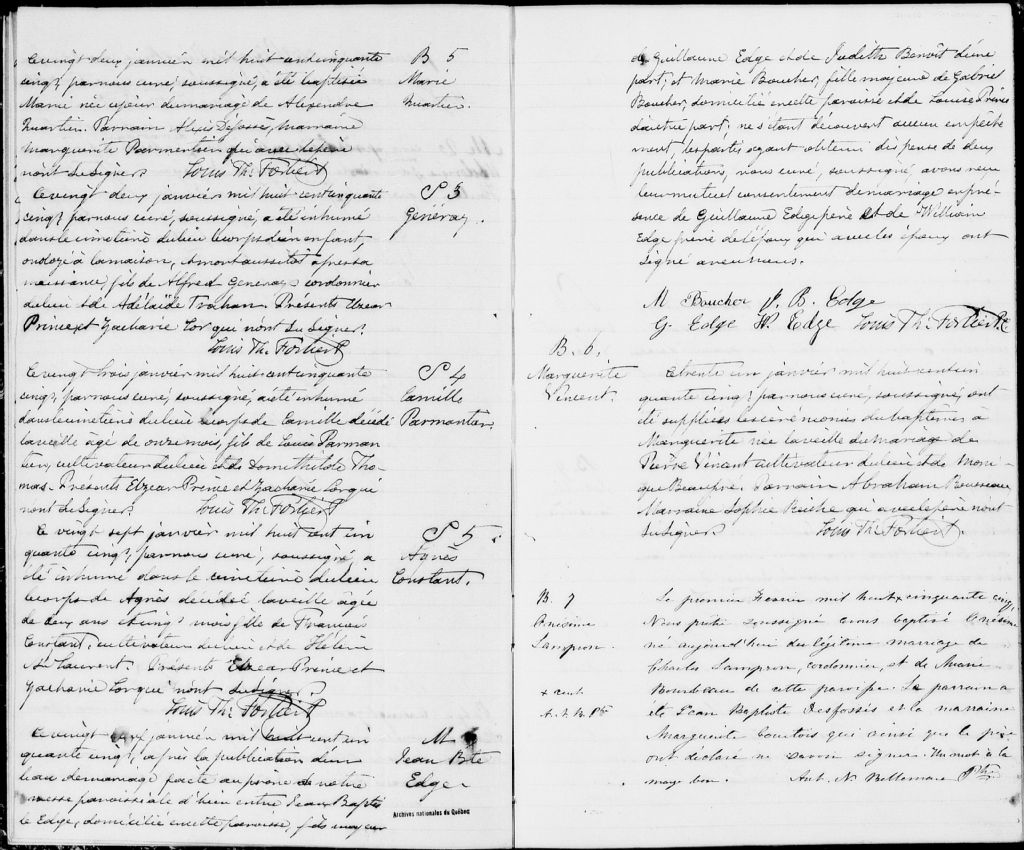 Le vingt deux janvier mil huit cent cinquante
cinq, par nous curé, soussigné, a été baptisée
Marie née ce jour du mariage de Alexendre
Martin. Parrain Alexis Défossé, marraine
Marguerite Parmentier qui avec le père
n'ont su signer
Louis Th: Fortier
B 5
Marie
Martin.
Le vingt deux janvier mil huit cent cinquante
cinq, par nous curé, soussigné, a été inhumé
dans le cimetière du lieu le corps d'un enfant,
ondoyé à la maison, & mort aussitôt après sa
naissance, fils de Alfred Généraz cordonnier
du lieu & de Adélaïde Trahan. Présents Elzear
Prince et Zacharie Lor qui n'ont su signer.
Louis Th: Fortier
S 3
Généraz.
Le vingt trois janvier mil huit cent cinquante
cinq, par nous curé, soussigné, a été inhumé
dans le cimetière du lieu le corps de Camille décédé
la veille âgé de onze mois, fils de Louis Parman
tier, cultivateur du lieu et de Domithilde Tho-
mas. Présents Elzear Prince et Zacharie Lor qui
n'ont su signer
Louis Th: Fortier
S 4
Camille
Parmantier
Le vingt sept janvier mil huit cent cin
quante cinq, par nous curé, soussigné a
été inhumé dans le cimetière du lieu
le corps de Agnès décédée la veille âgée
de deux ans & cinq mois fille de Francois
Constant, cultivateur du lieu & de Hélène
St. Laurent. Présents Elzear Prince et
Zacharie Lor qui n'ont su signer
Louis Th: Fortier
S 5
Agnès
Constant.
Le vingt janvier mil huit cent cin
quante cinq, après la publication d'un
ban de mariage faite au prône de notre
messe paroissiale d'hier entre Jean Baptis
te Edge, domicilié en cette paroisse, fils majeur
M
Jean Bte
Edge
Archives nationales du Québec
de Guillaume Edge et de Judith Benoit d'une
part; et Marie Boucher, fille majeure de Gabriel
Boucher, domiciliée en cette paroisse et de Louise Prince
d'autre part; ne s'étant découvert aucun empêche
ment les parties ayant obtenu dispense de deux
publications, nous curé, soussigné, avons reçu
leur mutuel consentement de mariage en pré-
sence de Guillaume Edge père et de William
Edge frère de l'époux qui avec les époux ont
signé avec nous.
M Boucher J. B. Edge
G. Edge W. Edge Louis Th: Fortier Ptre
B. 6.
Marguerite
Vincent.
Le trente un janvier mil huit cent cin
quante cinq, par nous curé, soussigné, ont
été suppléés les cérémonies du baptême à
Marguerite née la veille du mariage de
Pierre Vincent cultivateur du lieu et de Moni-
que Beaupré. Parrain Abraham Rousseau
Marraine Sophie Riché qui avec le père n'ont
su signer
Louis Th: Fortier.
B. 7
Onésime
Lampron.
+ cent
A. N. B. Ptre
Le premier Fevrier mil huit + cinquante cinq,
Nous prêtre soussigné avons baptisé Onésime
né aujourd'hui du légitime mariage de
Charles Lampron, cordonnier, et de Marie
Bourbeau de cette paroisse. Le parrain a
été Jean Baptiste Desfossés et la marraine
Marguerite Courtois qui ainsi que le père
ont déclaré ne savoir signer. Un mot à la
marge bon. Ant. N. Bellemare Ptre